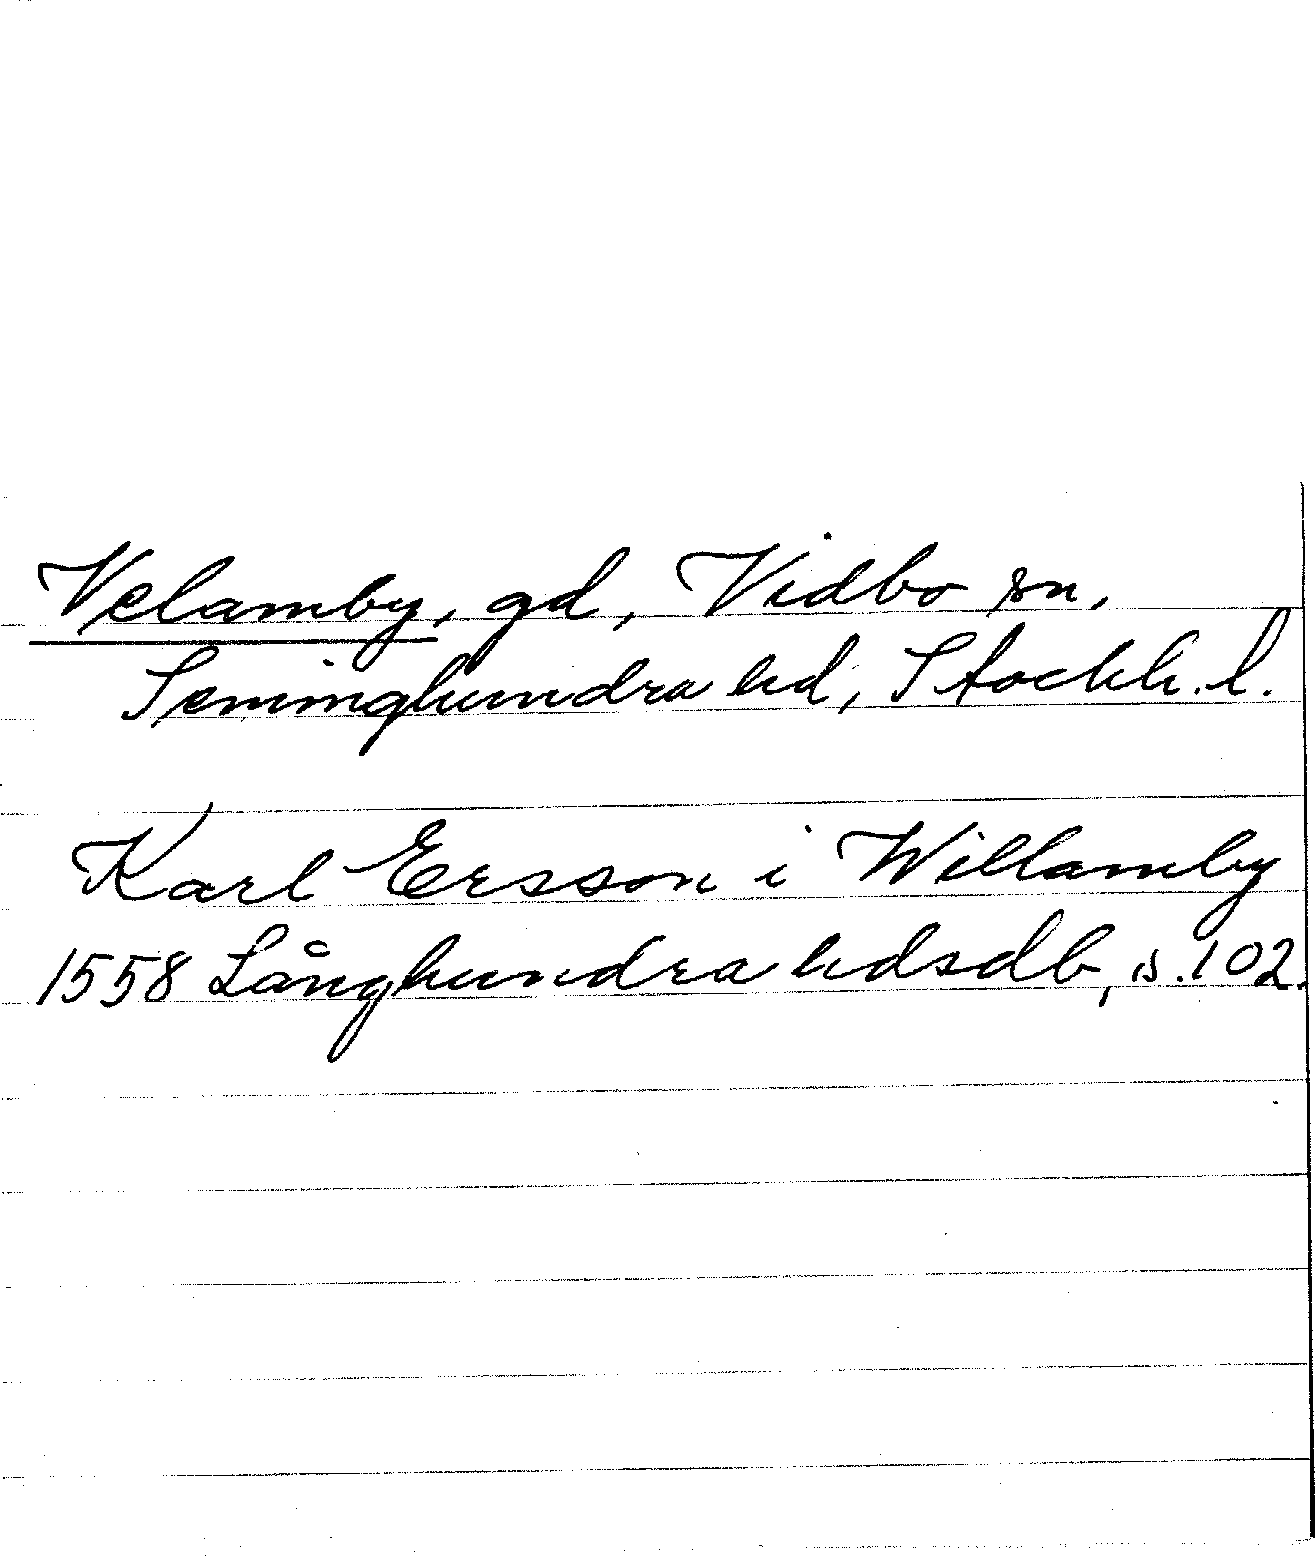 Velamby, gd, Vidbo sn,
Seminghundra hd, Stockh. l.
Karl Ersson i Willamby
1558 Långhundra hdsdb, s. 102.